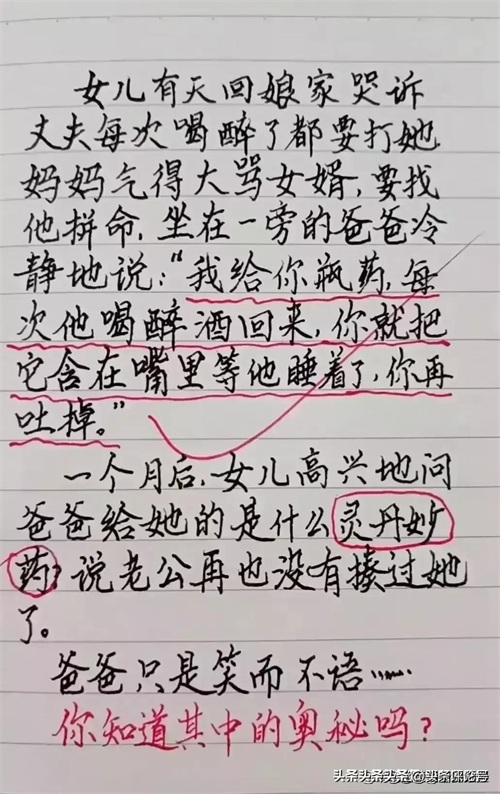 女儿有天回娘家哭诉
丈夫每次喝醉了都要打她
妈妈气得大骂女婿,要找
他拼命,坐在一旁的爸爸冷
静地说:“我给你瓶药,每
次他喝醉酒回来,你就把
它含在嘴里等他睡着了,你再
吐掉。”
一个月后,女儿高兴地问
爸爸给她的是什么灵丹妙
药?说老公再也没有揍过她
了。
爸爸只是笑而不语……
你知道其中的奥秘吗?
头条头条